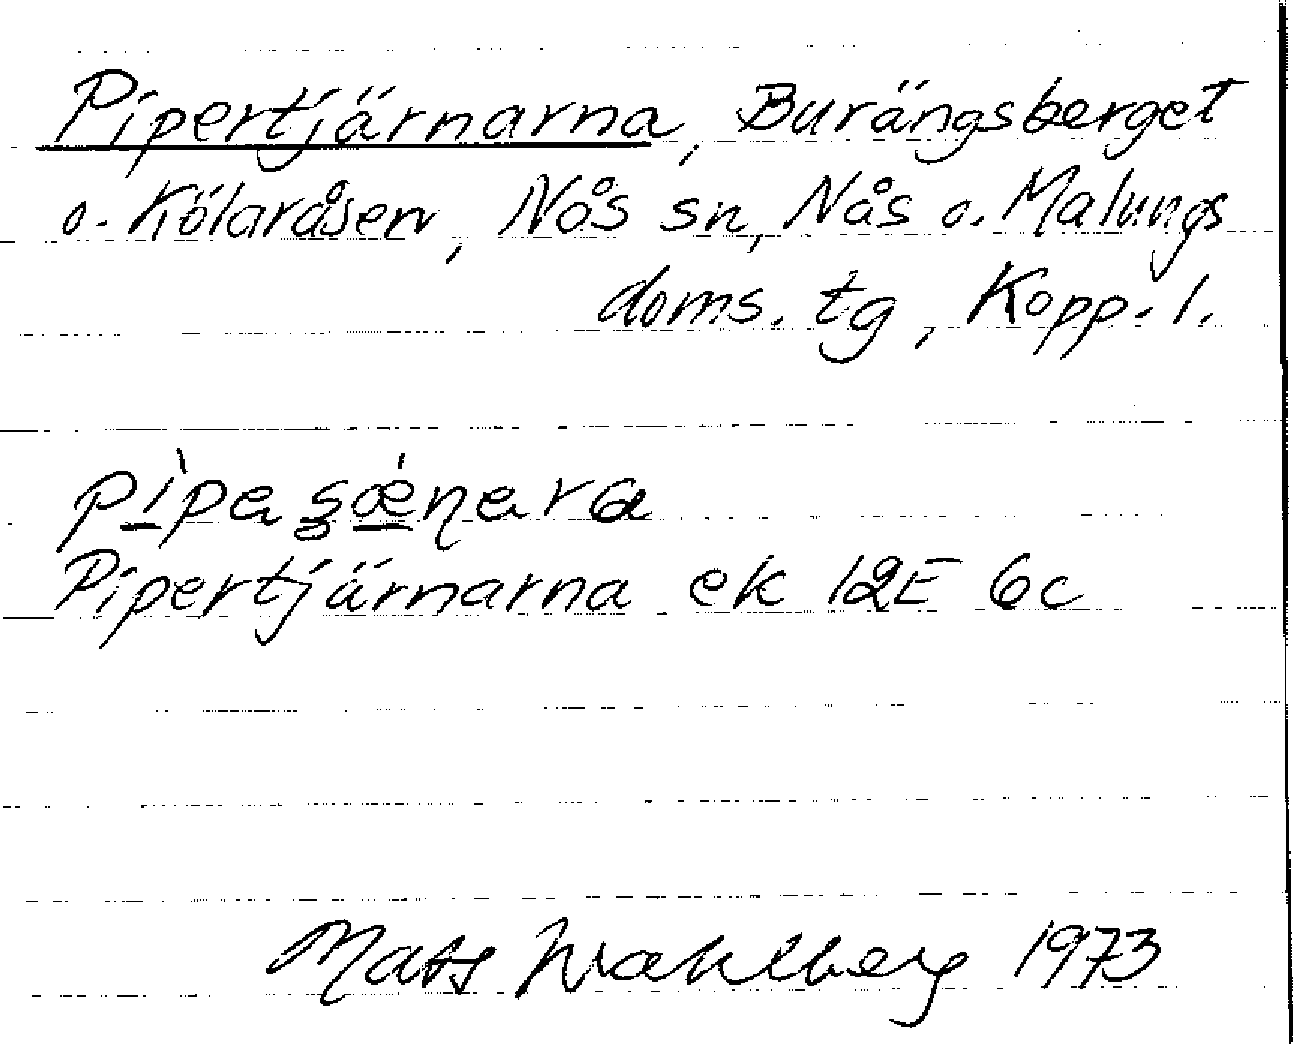 Pipertjärnarna, Burängsberget
o. Kölaråsen, Nås sn, Nås o. Malungs
doms. tg, Kopp. l.
Pipertjärnarna ek 12E 6c
Mats Wahlberg 1973